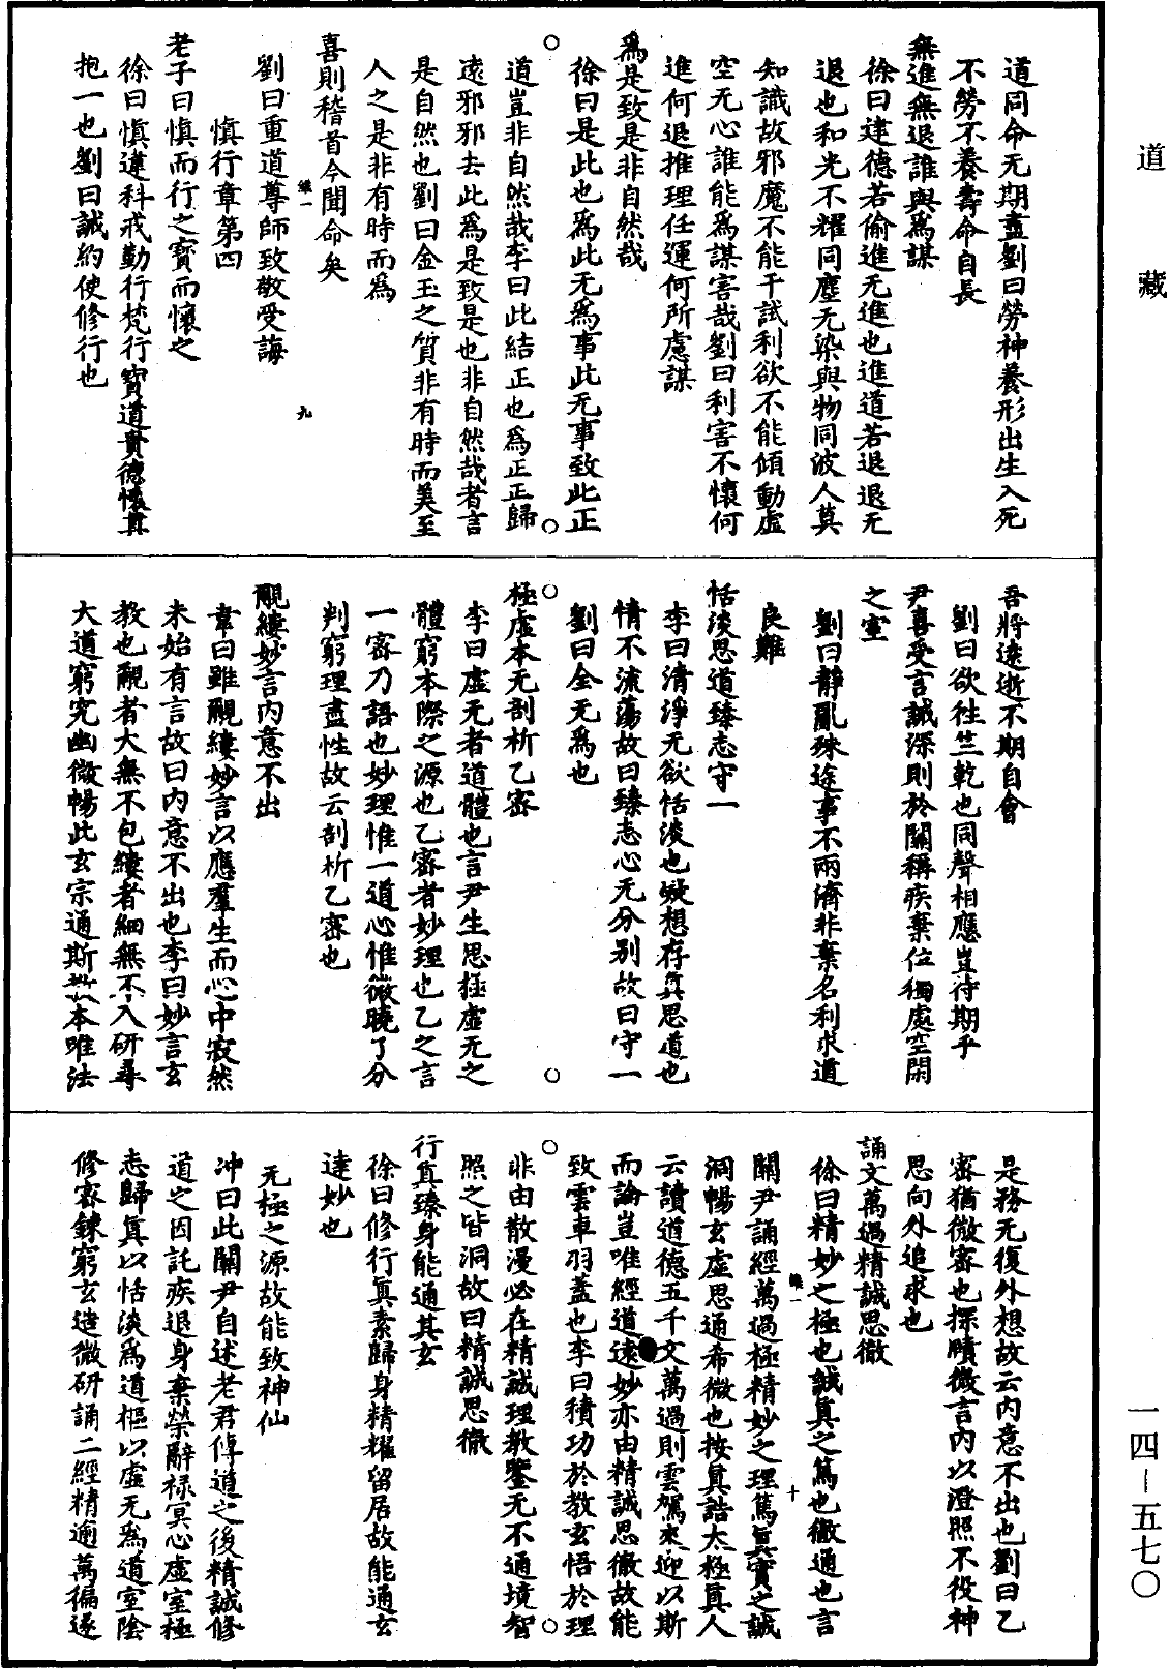 道藏
一四—五七〇
道同命无期盡劉曰勞神養形出生入死
不勞不養壽命自長
無進無退誰與爲謀
徐曰建德若偷進无進也進道若退退无
退也和光不耀同塵无染與物同波人莫
知識故邪魔不能干試利欲不能傾動虛
空无心誰能爲謀害哉劉曰利害不懷何
進何退推理任運何所慮謀
爲是致是非自然哉
徐曰是此也爲此无爲事此无事致此正
道豈非自然哉李曰此結正也爲正正歸
遠邪邪去此爲是致是也非自然哉者言
是自然也劉曰金玉之質非有時而美至
人之是非有時而爲
喜則稽首今聞命矣
緣一
九
劉曰重道尊師致敬受誨
慎行章第四
老子曰慎而行之寶而懷之
徐曰慎違科戒勤行梵行寶道貴德懷真
抱一也劉曰誡約使修行也
吾將遠逝不期自會
劉曰欲徃竺乾也同聲相應豈待期乎
尹喜受言誡深則於關稱疾棄位獨處空閑
之室
劉曰靜亂殊途事不兩濟非棄名利求道
良難
恬淡思道臻志守一
李曰清淨无欲恬淡也凝想存真思道也
情不流蕩故曰臻志心无分別故曰守一
劉曰全无爲也
極虛本无剖析乙密
李曰虛无者道體也言尹生思極虛无之
體窮本際之源也乙密者妙理也乙之言
一密乃語也妙理惟一道心惟微曉了分
判窮理盡性故云剖析乙密也
覼縷妙言內意不出
韋曰雖覼縷妙言以應羣生而心中寂然
未始有言故曰內意不出也李曰妙言玄
教也覼者大無不包縷者細無不入研尋
大道窮究幽微暢此玄宗通斯教本唯法
是務无復外想故云內意不出也劉曰乙
密猶微密也探賾微言內以澄照不役神
思向外追求也
誦文萬過精誠思徹
徐曰精妙之極也誠真之篤也徹通也言
關尹誦經萬過極精妙之理篤真實之誠
緣一
十
洞暢玄虛思通希微也按真誥太極真人
云讀道德五千文萬過則雲駕來迎以斯
而論豈唯經道遠妙亦由精誠思徹故能
致雲車羽蓋也李曰積功於教玄悟於理
非由散漫必在精誠理教鑒无不通境智
照之皆洞故曰精誠思徹
行真臻身能通其玄
徐曰修行真素歸身精耀留居故能通玄
達妙也
无極之源故能致神仙
冲曰此關尹自述老君傳道之後精誠修
道之因託疾退身棄榮辭祿冥心虛室極
志歸真以恬淡爲道樞以虛无爲道室陰
修密鍊窮玄造微研誦二經精逾萬徧遂